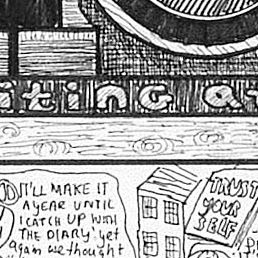 iting a
IT'LL MAKE IT
A YEAR UNTIL
I CATCH UP WITH
THE DIARY! yet
again we thought
TRUST
YOUR
SELF